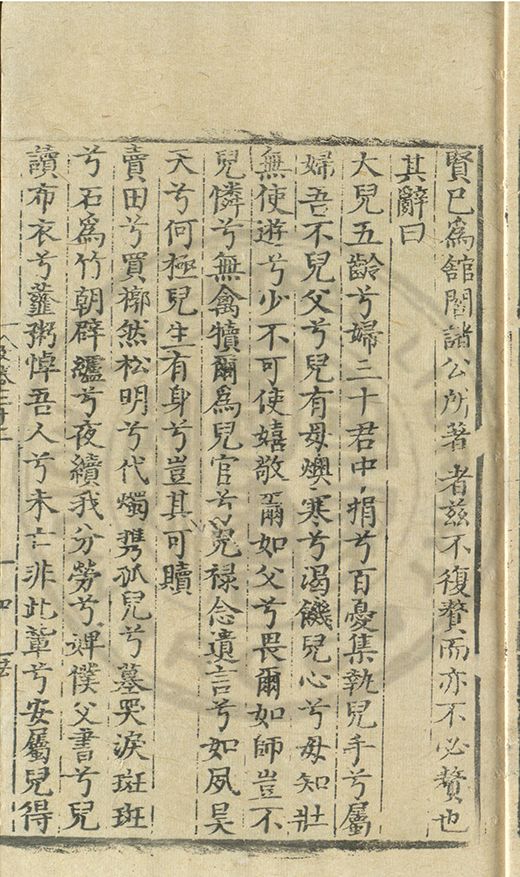 賢已爲舘閣諸公所著者茲不復贅而亦不必贅也
其辭曰
大兒五齡兮婦三十君中捐兮百憂集執兒手兮屬
婦吾不兒父兮兒有母燠寒兮渴饑兒心兮母知壯
無使遊兮少不可使嬉敬爾如父兮畏爾如師豈不
兒憐兮無禽犢爾爲兒官兮兒禄念遺言兮如夙昊
天兮何極兒生有身兮豈其可贖
賣田兮買槨然松明兮代燭携孤兒兮墓哭淚斑斑
兮石爲竹朝辟纑兮夜續我分勞兮婢僕父書兮兒
讀布衣兮虀粥悼吾人兮未亡非此輩兮安屬兒得